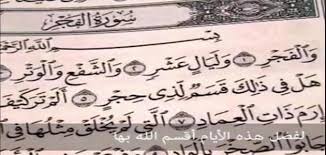 سُورَةُ الْفَجْرِ
بِسْمِ اللَّهِ الرَّحْمَٰنِ
وَالْفَجْرِ ١ وَلَيَالٍ عَشْرٍ ٢ وَالشَّفْعِ وَالْوَتْرِ
هَلْ فِي ذَٰلِكَ قَسَمٌ لِّذِي حِجْرٍ ٥ أَلَمْ تَرَ كَيْفَ
إِرَمَ ذَاتِ الْعِمَادِ ٧ الَّتِي لَمْ يُخْلَقْ مِثْلُهَا فِي
لفضل هذه الأيام أقسم الله بها
جَابُوا الصَّخْرَ